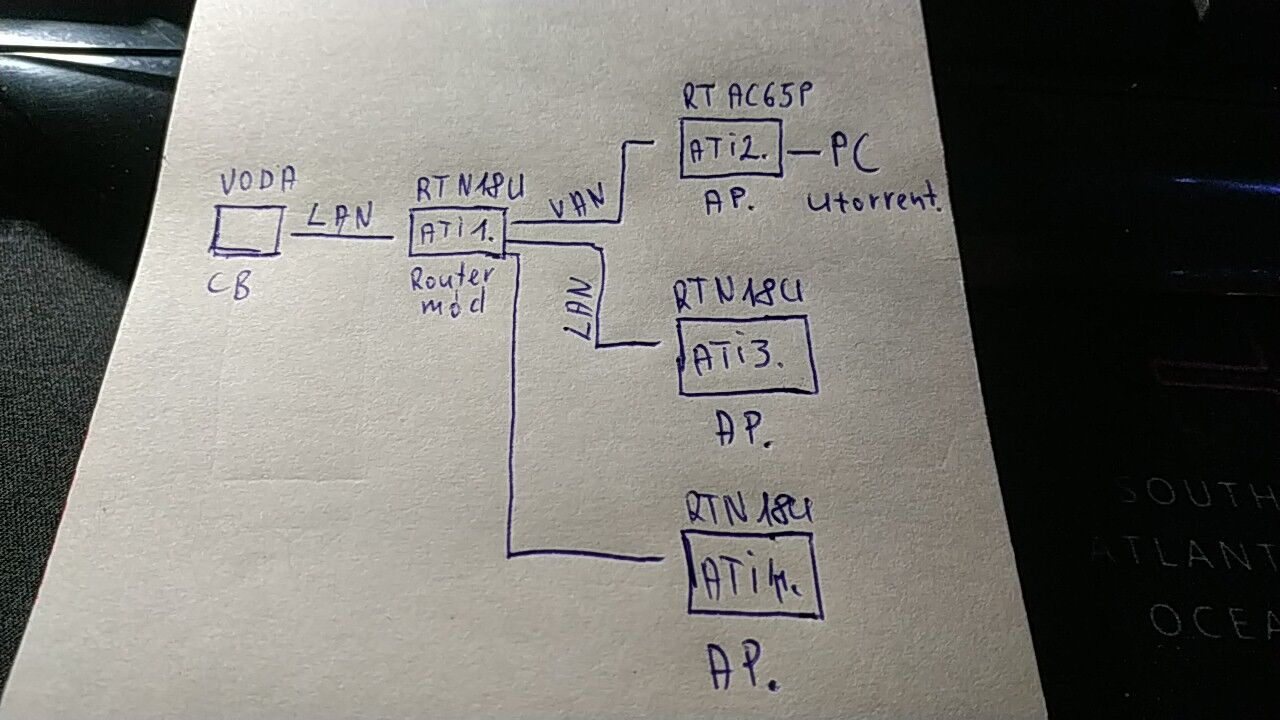 RT AC65P
ATi2. – PC
AP.
Utorrent.
VODA
CB
LAN
RTN18U
ATi1.
Router
mód
VAN
LAN
RTN18U
ATi3.
AP.
RTN18U
ATi4.
AP.
SOUTH
ATLANT
OCEA